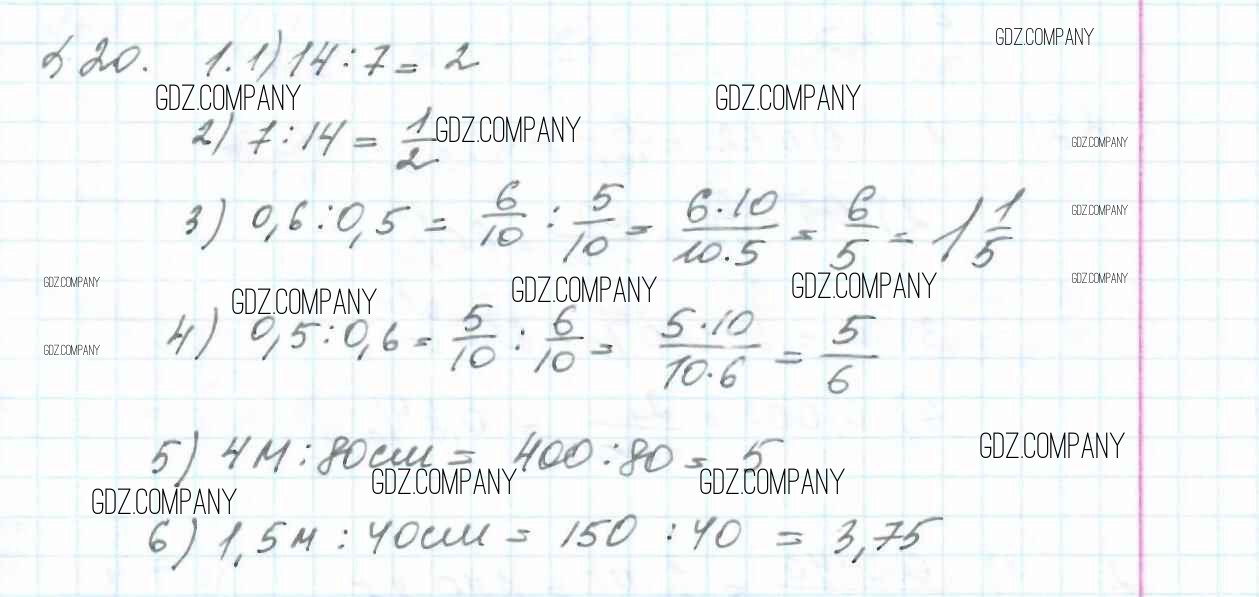 § 20. 1. 1) 14 : 7 = 2
GDZ.COMPANY
GDZ.COMPANY
GDZ.COMPANY
2) 7 : 14 = 1/2
GDZ.COMPANY
GDZ.COMPANY
3) 0,6 : 0,5 = 6/10 : 5/10 = 6·10/10·5 = 6/5 = 1 1/5
GDZ.COMPANY
GDZ.COMPANY
GDZ.COMPANY
GDZ.COMPANY
GDZ.COMPANY
GDZ.COMPANY
4) 0,5 : 0,6 = 5/10 : 6/10 = 5·10/10·6 = 5/6
GDZ.COMPANY
5) 4м : 80см = 400 : 80 = 5
GDZ.COMPANY
GDZ.COMPANY
GDZ.COMPANY
GDZ.COMPANY
6) 1,5м : 40см = 150 : 40 = 3,75